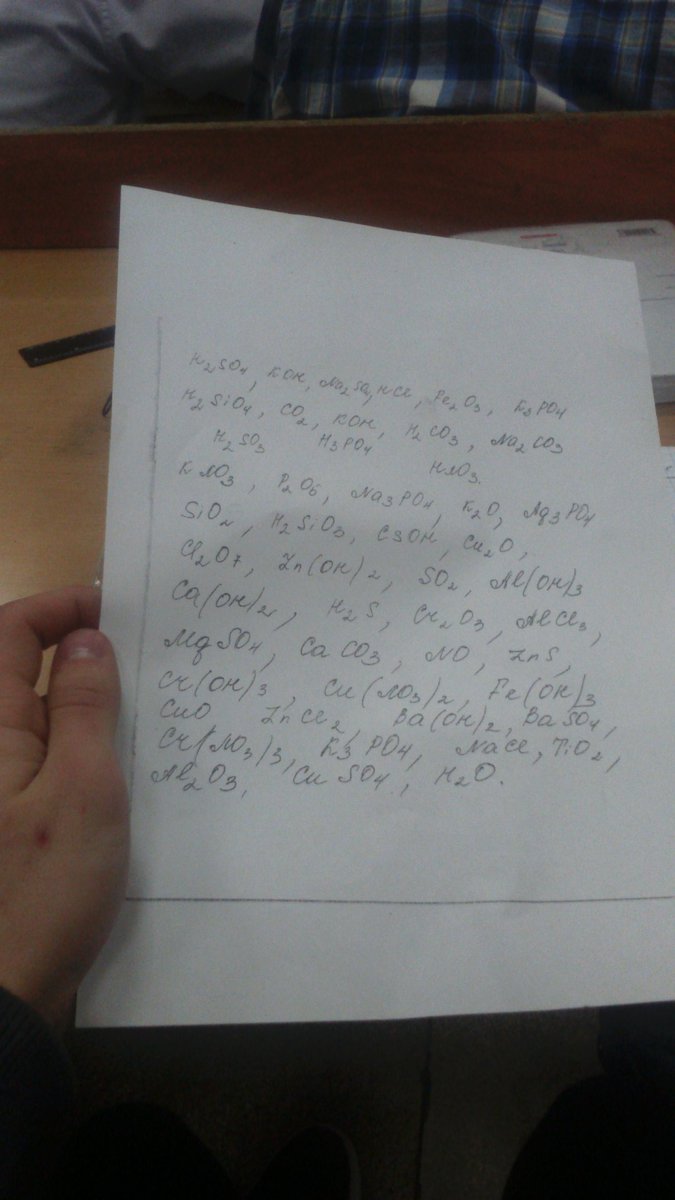 H₂SO₄, KOH, Na₂SO₄, HCl, Fe₂O₃, K₃PO₄
H₂SiO₄, CO₂, KOH, H₂CO₃, Na₂CO₃
H₂SO₃ H₃PO₄ HNO₃.
KNO₃, P₂O₅, Na₃PO₄, K₂O, Ag₃PO₄
SiO₂, H₂SiO₃, CsOH, Cu₂O,
Cl₂O₇, Zn(OH)₂, SO₂, Al(OH)₃
Ca(OH)₂, H₂S, Cr₂O₃, AlCl₃,
MgSO₄, CaCO₃, NO, ZnS,
Cr(OH)₃, Cu(NO₃)₂, Fe(OH)₃
CuO ZnCl₂, Ba(OH)₂, BaSO₄,
Cr(NO₃)₃, K₃PO₄, NaCl, TiO₂,
Al₂O₃, CuSO₄, H₂O.